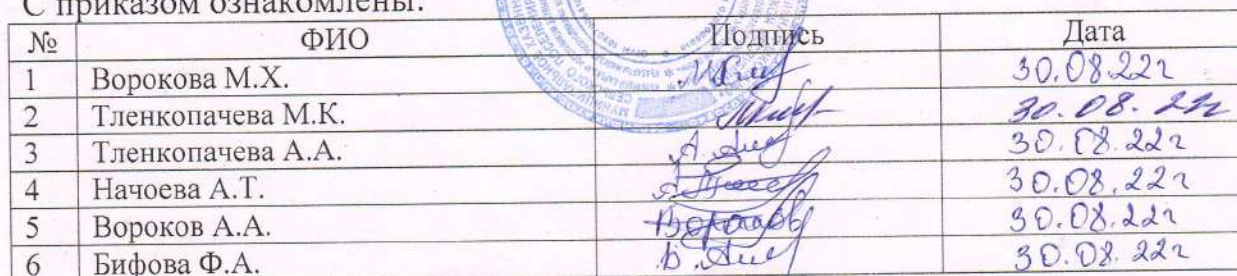 С приказом ознакомлены:
№ ФИО Подпись Дата
1 Ворокова М.Х. 30.08.22г
2 Тленкопачева М.К. 30.08.22г
3 Тленкопачева А.А. 30.08.22г
4 Начоева А.Т. 30.08.22г
5 Вороков А.А. 30.08.22г
6 Бифова Ф.А. 30.08.22г